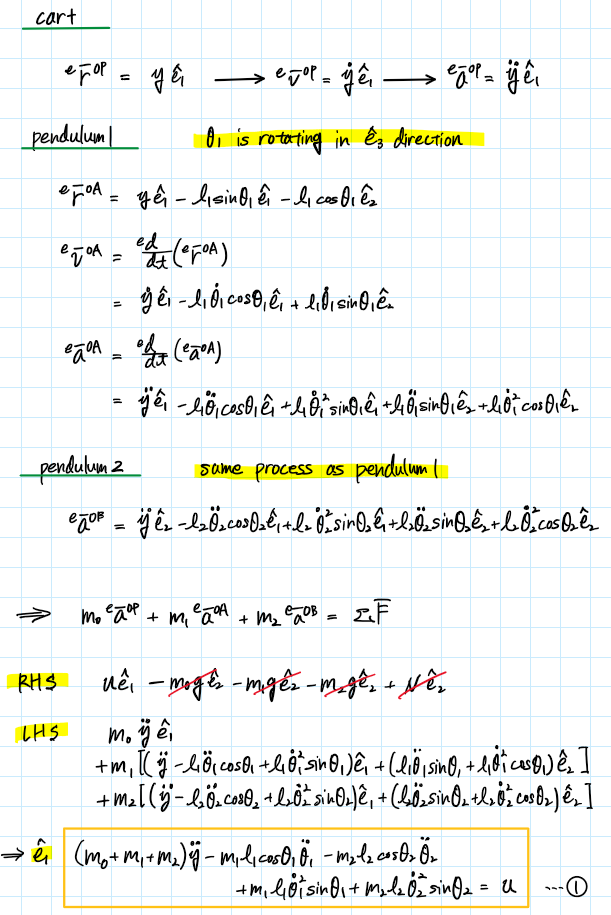 cart
ᵉr̄ᴼᴾ = yê₁ ⟶ ᵉv̄ᴼᴾ = ẏê₁ ⟶ ᵉāᴼᴾ = ÿê₁
pendulum 1 θ₁ is rotating in ê₃ direction
ᵉr̄ᴼᴬ = yê₁ − l₁sinθ₁ê₁ − l₁cosθ₁ê₂
ᵉv̄ᴼᴬ = ᵉd/dt (ᵉr̄ᴼᴬ)
= ẏê₁ − l₁θ̇₁cosθ₁ê₁ + l₁θ̇₁sinθ₁ê₂
ᵉāᴼᴬ = ᵉd/dt (ᵉāᴼᴬ)
= ÿê₁ − l₁θ̈₁cosθ₁ê₁ + l₁θ̇₁²sinθ₁ê₁ + l₁θ̈₁sinθ₁ê₂ + l₁θ̇₁²cosθ₁ê₂
pendulum 2 same process as pendulum 1
ᵉāᴼᴮ = ÿê₂ − l₂θ̈₂cosθ₂ê₁ + l₂θ̇₂²sinθ₂ê₁ + l₂θ̈₂sinθ₂ê₂ + l₂θ̇₂²cosθ₂ê₂
⟹ m₀ ᵉāᴼᴾ + m₁ ᵉāᴼᴬ + m₂ ᵉāᴼᴮ = ΣF̄
RHS uê₁ − m₀gê₂ − m₁gê₂ − m₂gê₂ + Nê₂
LHS m₀ÿê₁
+ m₁[(ÿ − l₁θ̈₁cosθ₁ + l₁θ̇₁²sinθ₁)ê₁ + (l₁θ̈₁sinθ₁ + l₁θ̇₁²cosθ₁)ê₂]
+ m₂[(ÿ − l₂θ̈₂cosθ₂ + l₂θ̇₂²sinθ₂)ê₁ + (l₂θ̈₂sinθ₂ + l₂θ̇₂²cosθ₂)ê₂]
⇒ ê₁ (m₀+m₁+m₂)ÿ − m₁l₁cosθ₁θ̈₁ − m₂l₂cosθ₂θ̈₂
+ m₁l₁θ̇₁²sinθ₁ + m₂l₂θ̇₂²sinθ₂ = u ---①